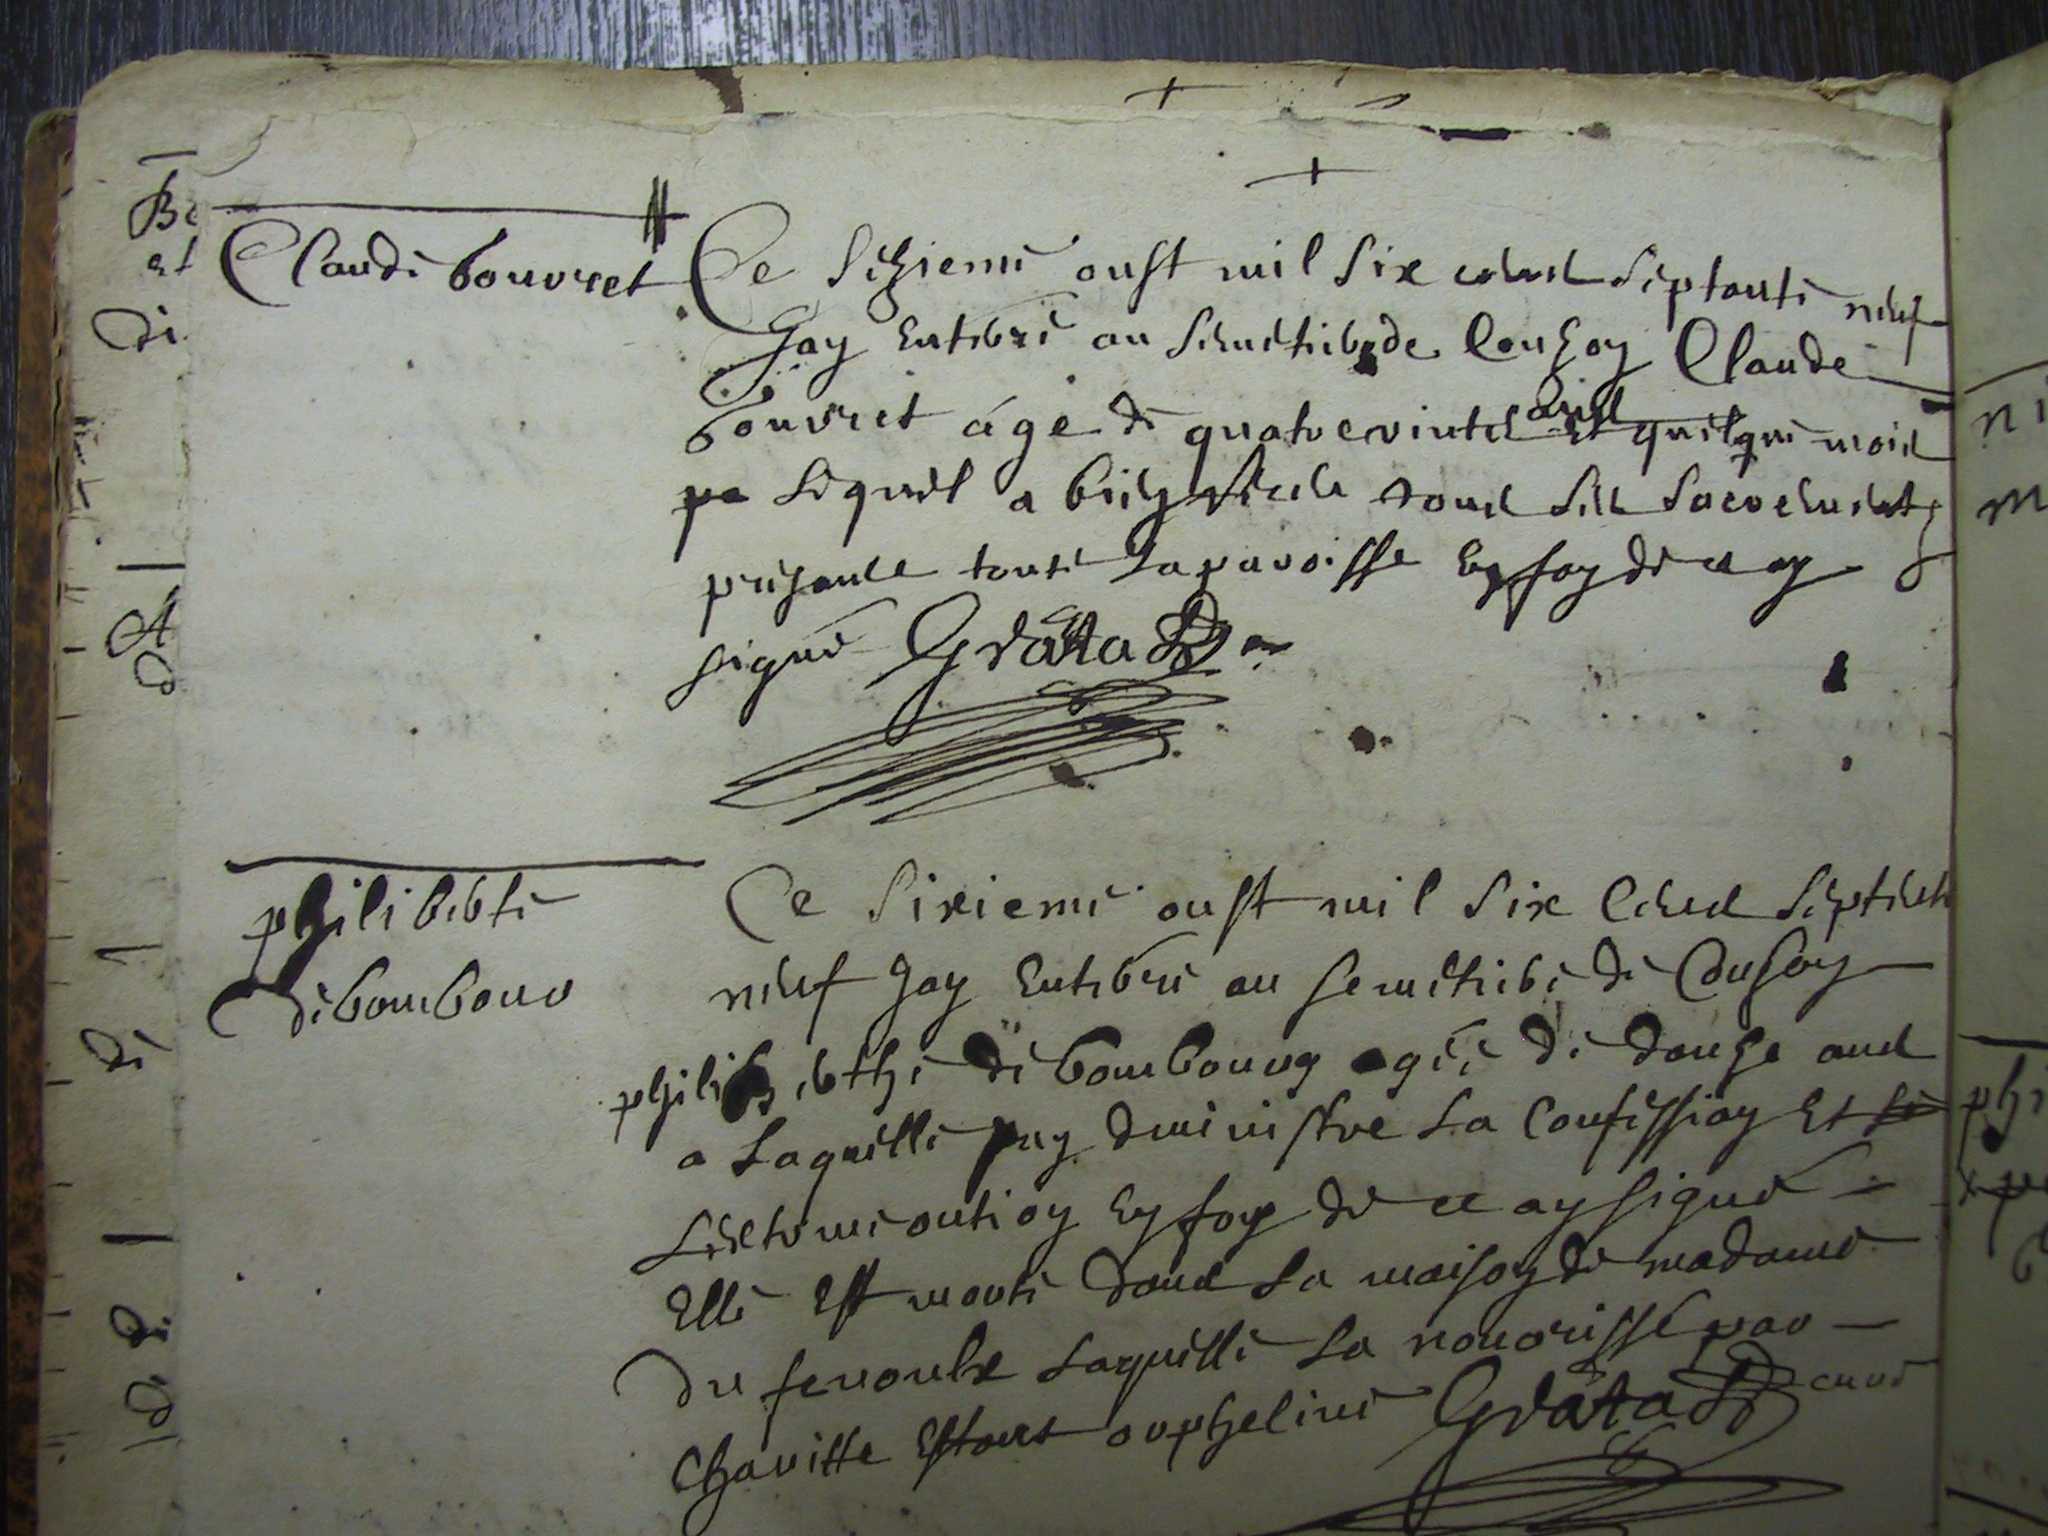 Claude bouvret
Ce sizieme oust mil six cens septante neuf
Jay enterre au semetierre de Cousoy Claude
bouvret áge de quatre vintes ans et quelque mois
lequel a bien receu tous ses sacremens
presante toute la paroisse en foy de ce ay
signé Grata
philiberte
de bombour
Ce sixieme oust mil six cens septente
neuf Jay enterre au semetiere de Cousoy
philiberthe de bombourg agée de douze ans
a laquelle jay dministre la confession et
lextremontion en foy de ce ay signé
elle est morte dans la maison de madame
du fenoulx laquelle la nourisse par
charitte estant orpheline Grata curé